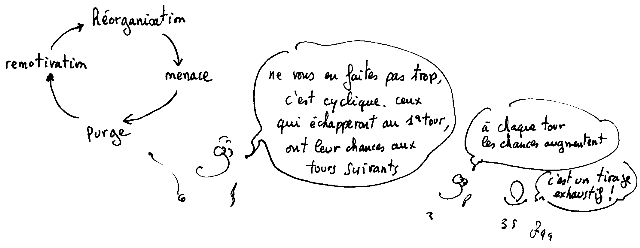 Réorganisation
remotivation
menace
Purge
ne vous en faites pas trop,
c'est cyclique. ceux
qui échapperont au 1er tour,
ont leur chances aux
tours suivants
à chaque tour
les chances augmentent
c'est un tirage
exhaustif !